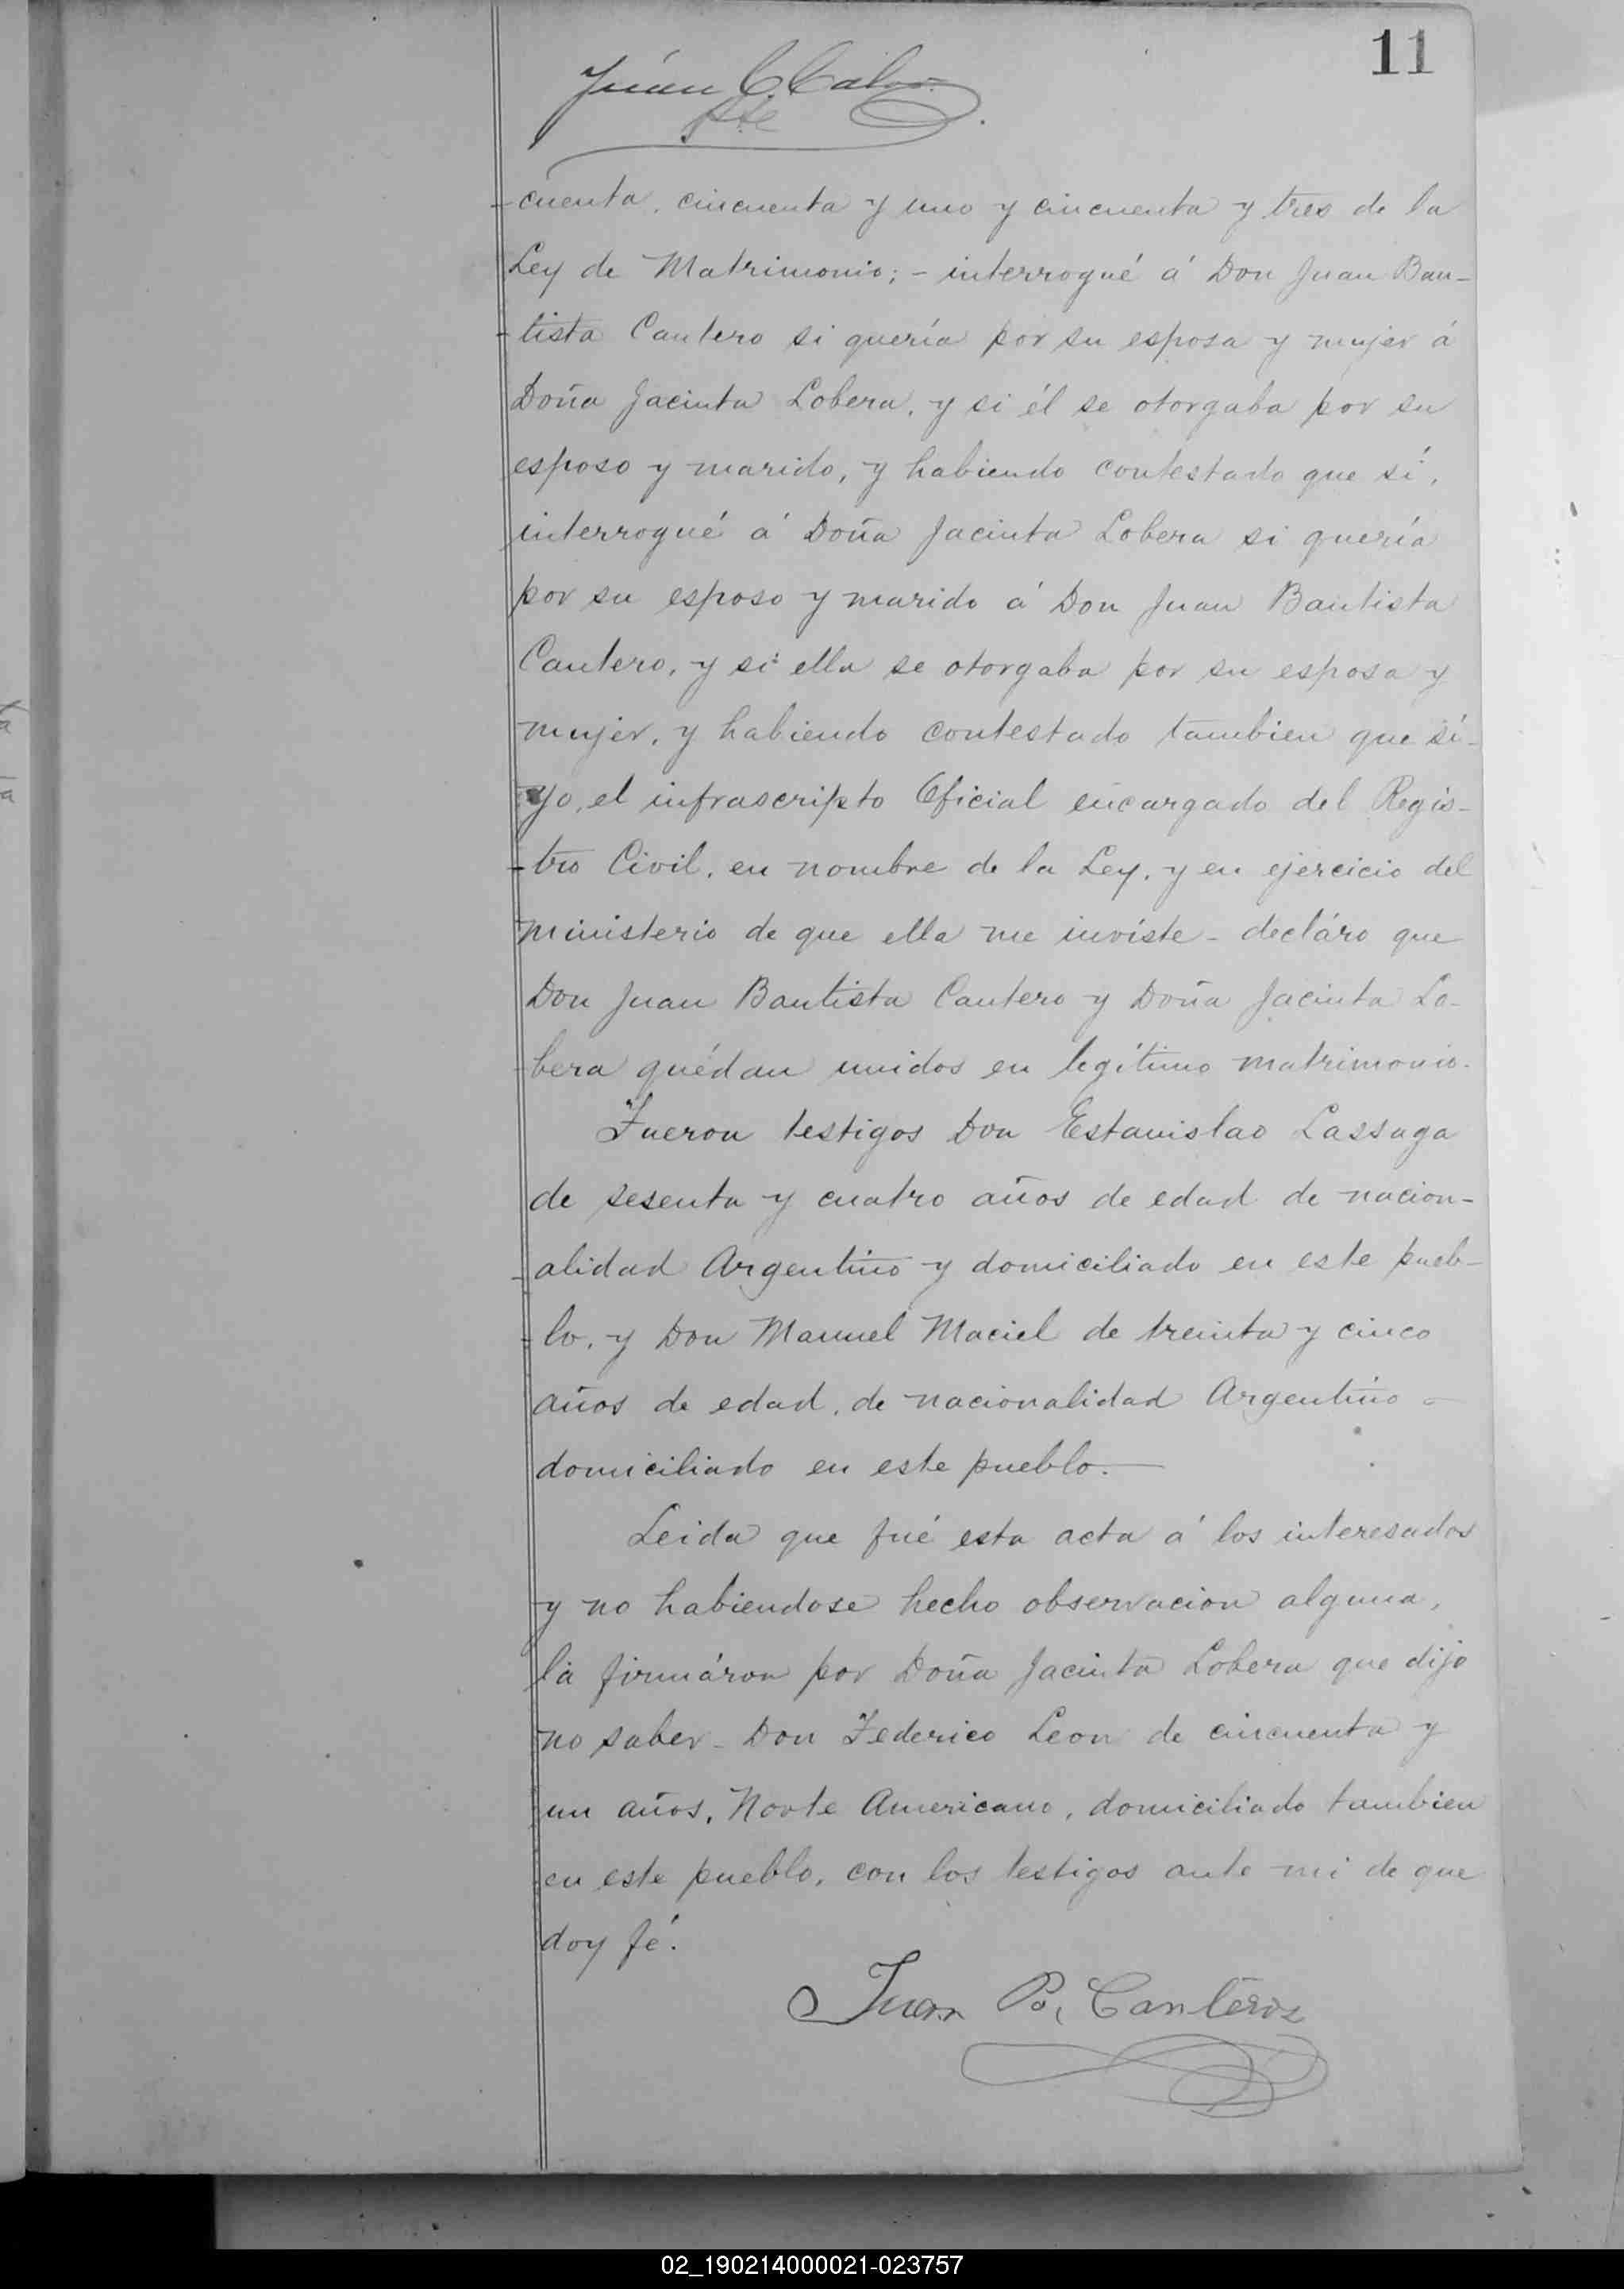 11
Juan C. Calvo
Pte
-cuenta, cincuenta y uno y cincuenta y tres de la
Ley de Matrimonio; - interrogué á Don Juan Bau-
-tista Cantero si quería por su esposa y mujer á
Doña Jacinta Lobera, y si él se otorgaba por su
esposo y marido, y habiendo contestado que sí,
interrogué á Doña Jacinta Lobera si quería
por su esposo y marido á Don Juan Bautista
Cantero, y si ella se otorgaba por su esposa y
mujer, y habiendo contestado tambien que sí-
Yo, el infrascripto Oficial encargado del Regis-
-tro Civil, en nombre de la Ley, y en ejercicio del
ministerio de que ella me inviste - decláro que
Don Juan Bautista Cantero y Doña Jacinta Lo-
-bera quédan unidos en legítimo matrimonio.
Fueron testigos Don Estanislao Lassaga
de sesenta y cuatro años de edad de nacion-
-alidad Argentino y domiciliado en este pueb-
-lo, y Don Manuel Maciel de treinta y cinco
años de edad, de nacionalidad Argentino -
domiciliado en este pueblo.-
Leida que fué esta acta á los interesados
y no habiendose hecho observacion alguna,
la firmáron por Doña Jacinta Lobera que dijo
no saber - Don Federico Leon de cincuenta y
un años, Norte Americano, domiciliado tambien
en este pueblo, con los testigos ante mi de que
doy fé.
Juan Bª. Canteros
02_190214000021-023757